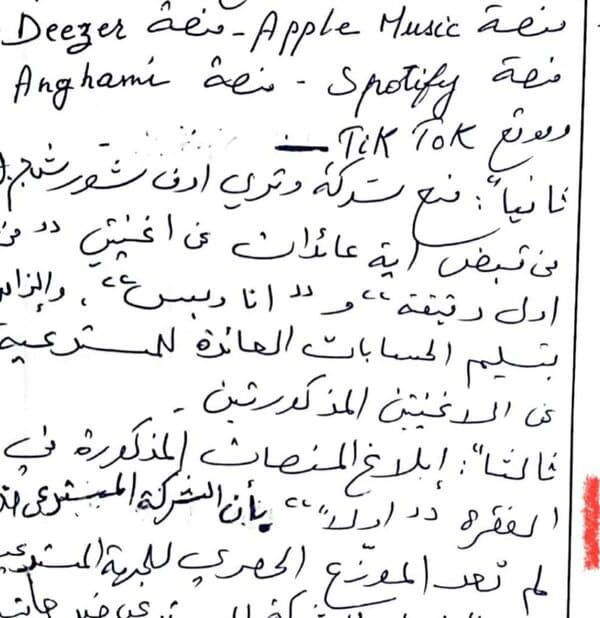 منصة Apple Music - منصة Deezer
منصة Spotify - منصة Anghami
وموقع TiK ToK -
ثانياً: منع شركة وتري اوف شور ش.م.
من قبض اية عائدات عن اغنيتي "من
اول دقيقة" و "انا وبس"، والزام
بتسليم الحسابات العائدة للمستدعية
عن الاغنيتين المذكورتين.
ثالثاً: إبلاغ المنصات المذكورة في
الفقرة "اولاً" بأن الشركة المستدعى
لم تعد الموزّع الحصري للجهة المستدعية